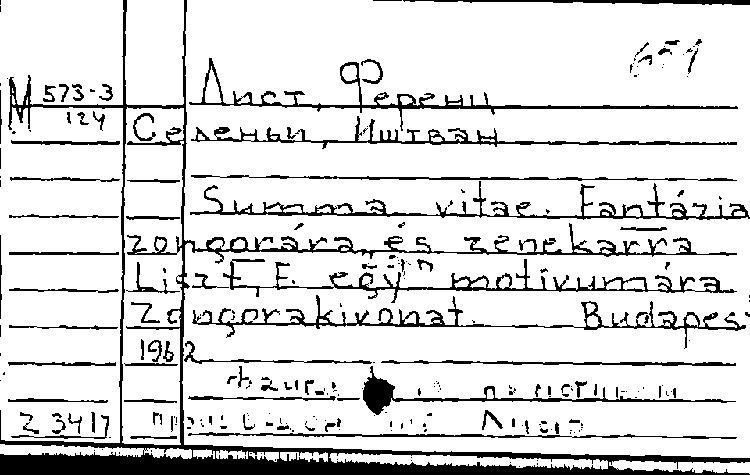 651
М 573-3 Лист, Ференц
124
Селеньи, Иштван
Summa vitae. Fantázia
zongorára és zenekarra
Liszt, F. egy motívumára
Zongorakivonat. Budapest
1962
Z 3417 Лист